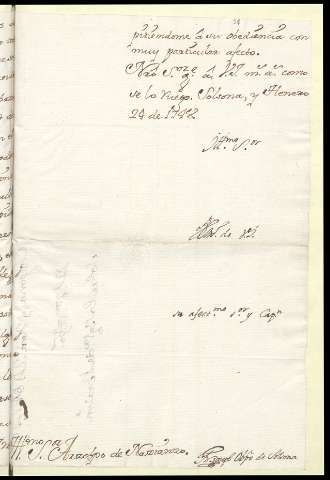 pitiéndome a su obediencia con
muy particular afecto.
Nro S.r g.e á V.S.Y. m.s a.s como
se lo ruego. Solsona, y Henero
24 de 1742.
Yll.mo S.or
B.L.M. de V.S.Y.
su afect.mo s.or y Cap.n
Yll.mo S.or Arzobpo de Nazianzo.
Obpo de Solsona